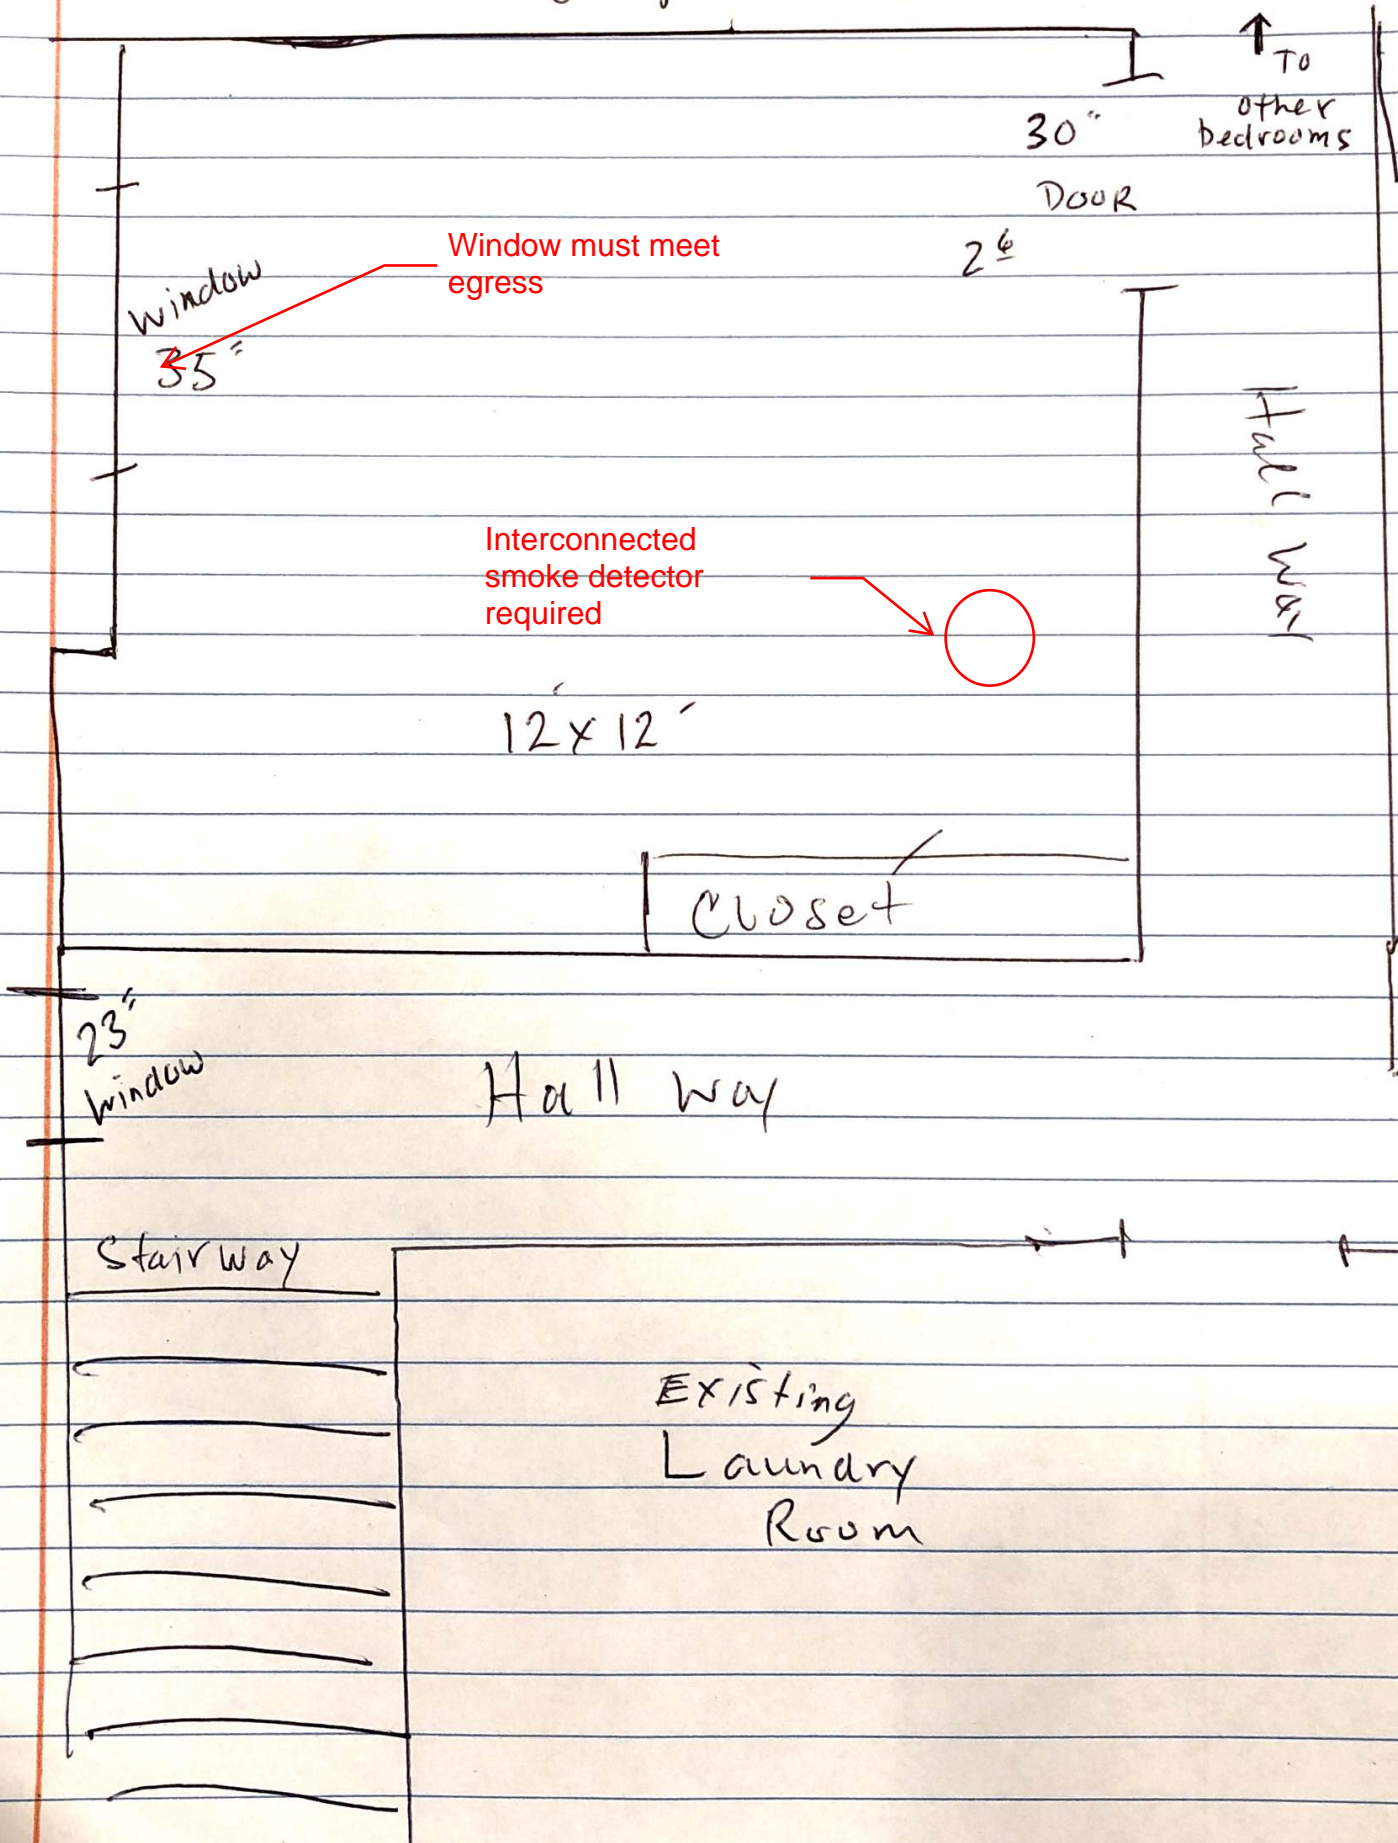 ↑ To
other
bedrooms
30"
DOOR
2 6
Window must meet
egress
Window
35"
Hall Way
Interconnected
smoke detector
required
12' x 12'
Closet
23"
Window
Hall way
Stairway
Existing
Laundry
Room